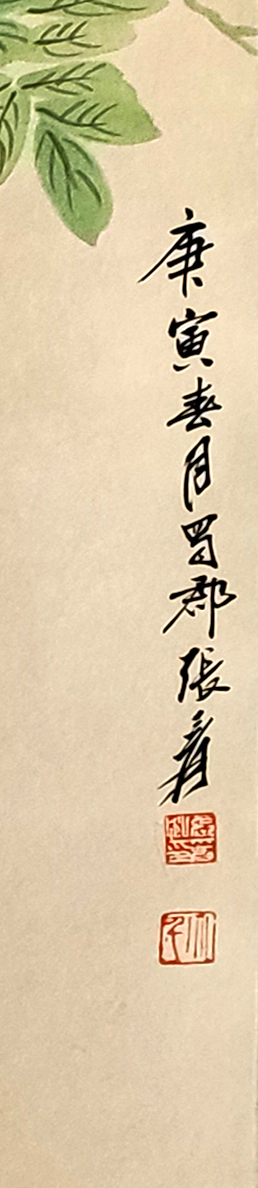 庚寅春月蜀郡張爰